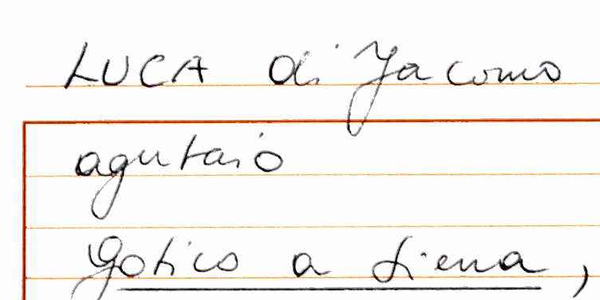 LUCA di Jacomo
agutaio
Gotico a Siena,